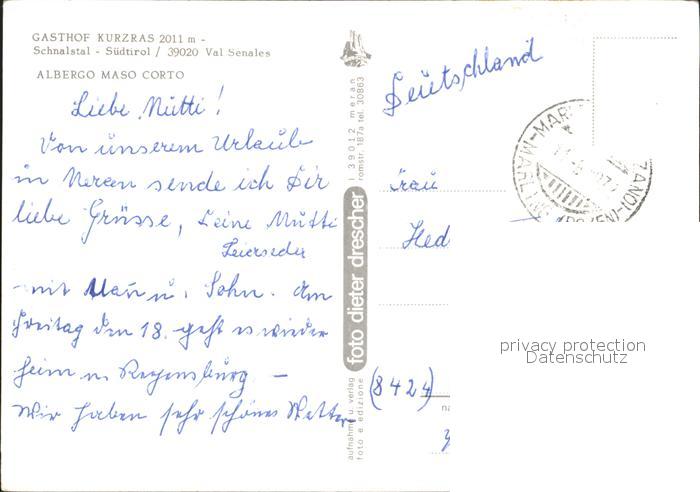 GASTHOF KURZRAS 2011 m -
Schnalstal - Südtirol / 39020 Val Senales
ALBERGO MASO CORTO
Liebe Mutti!
Von unserem Urlaub
in Meran sende ich Dir
liebe Grüsse, Deine Mutti
Beierseder
mit Mann u. Sohn. Am
Freitag den 18. geht es wieder
heim n. Regensburg. —
Wir haben sehr schönes Wetter
foto dieter drescher
I 39012 meran
romstr. 187a tel. 30863
aufnahme u. verlag
foto e edizione
Deutschland
Frau
Hed
(8424)
MARTIN-MAR
privacy protection
Datenschutz